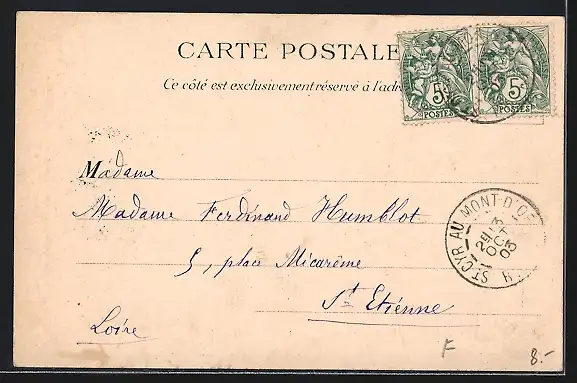 CARTE POSTALE
Ce côté est exclusivement réservé à l'adr
5c 5c
POSTES POSTES
Madame
Madame Ferdinand Humblot
5, place Micarême
St Etienne
Loire
ST CYR AU MONT D'OR
25
OCT
03
F
8.-